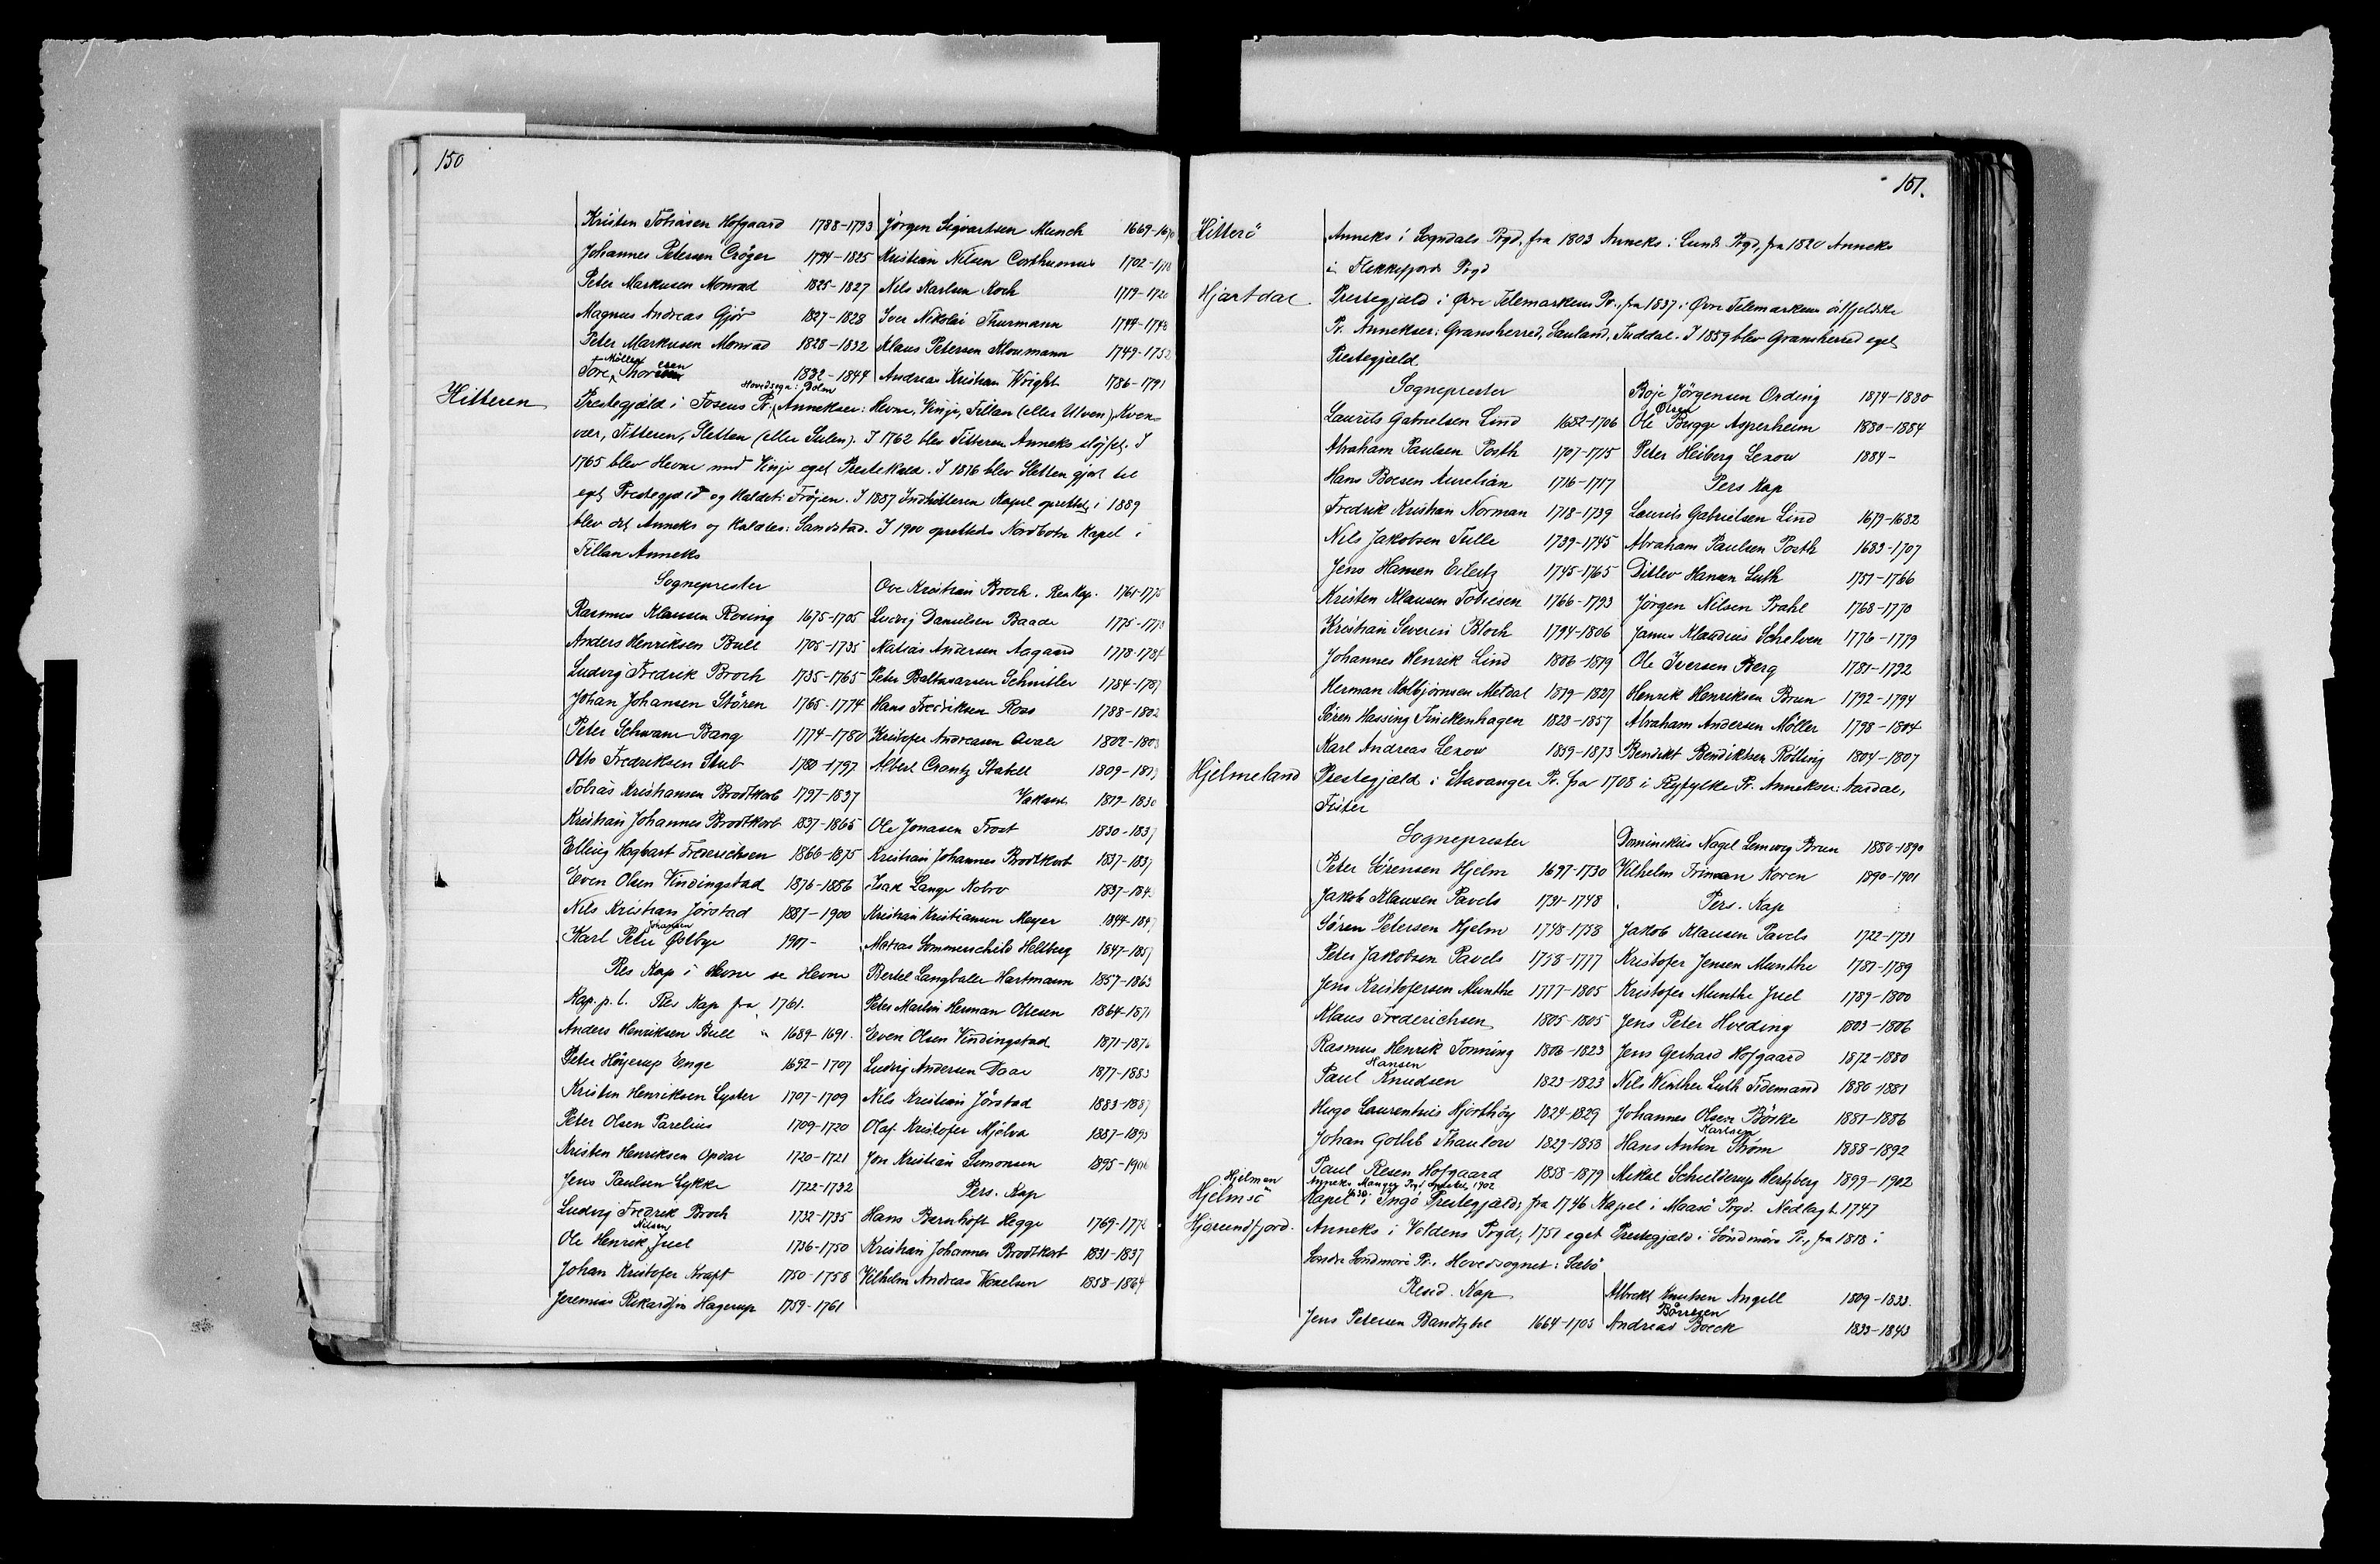 150
Kristen Tobiasen Hofgaard 1788-1793
Johannes Petersen Crøger 1794-1825
Peter Markusen Monrad 1825-1827
Magnus Andreas Gjør 1827-1828
Peter Markusen Monrad 1828-1832
Tore Møller 1832-1844
Jørgen Sigvartsen Munch 1669-
Kristian Nilsen 1702-
Nils Karlsen Koch 1719-1720
Iver Nikolai Thurmann 1744-1748
Klaus Petersen Kloumann 1749-1752
Andreas Kristian Wright 1786-1791
Hitteren
Hovedsogn: Dolen
Prestegjæld i Fosens Pr., Annekser: Hevne, Vinje, Fillan (eller Ulven), Kven-
vær, Titteren, Sletten (eller Sulen). I 1762 blev Titteren Anneks sløjfet. I
1765 blev Hevne med Vinje eget Prestekald. I 1876 blev Sletten gjort til
eget Prestegjæld og kaldet: Frøjen. I 1887 Indhitteren Kapel oprettet, i 1889
blev det Anneks og kaldtes: Sandstad. I 1900 oprettedes Nordbotn Kapel i
Fillan Anneks
Sogneprester
Rasmus Klausen Rosing 1675-1705
Anders Henriksen Bull 1705-1735
Ludvig Fredrik Broch 1735-1765
Johan Johansen Støren 1765-1774
Peter Schwane Bang 1774-1780
Otto Fredriksen Stub 1780-1797
Tobias Kristiansen Brodtkorb 1797-1837
Kristian Johannes Brodtkorb 1837-1865
Elling Hagbart Frederichsen 1866-1875
Even Olsen Vindingstad 1876-1886
Nils Kristian Jørstad 1887-1900
Karl Peter Johansen Østbye 1901-
Res Kap i Hevne se Hevne
Kap. p. l. Res Kap fra 1761.
Anders Henriksen Bull 1689-1691
Peter Høyerup Enge 1692-1707
Kristen Henriksen Lyster 1707-1709
Peter Olsen Parelius 1709-1720
Kristen Henriksen Opdal 1720-1721
Jens Paulsen Lykke 1722-1732
Ludvig Fredrik Broch 1732-1735
Ole Henrik Nilsen Juel 1736-1750
Johan Kristofer Kraft 1750-1758
Jeremias Rikardsen Hagerup 1759-1761
Ove Kristian Broch. Res Kap. 1761-1775
Ludvig Danielsen Baade 1775-
Matias Andersen Aagaard 1778-1784
Peter Baltasarsen Schnitler 1784-1787
Hans Fredriksen Ross 1788-1802
Kristofer Andreasen Qvale 1802-
Albert Crantz Stabell 1809-
Vakant 1819-1830
Ole Jonasen Frost 1830-1837
Kristian Johannes Brodtkorb 1837-1837
Isak Lange Kobro 1837-
Kristian Kristiansen Meyer 1844-1847
Matias Sommerschild Hellberg 1847-1857
Bertel Langballe Hartmann 1857-1863
Peter Martin Herman Ottesen 1864-1871
Even Olsen Vindingstad 1871-1876
Ludvig Andersen Daae 1877-1883
Nils Kristian Jørstad 1883-1887
Olaf Kristofer Mjelva 1887-1895
Jon Kristian Simonsen 1895-1906
Pers. Kap
Hans Bernhoft Hegge 1769-
Kristian Johannes Brodtkorb 1831-1837
Vilhelm Andreas Wexelsen 1858-1864
151.
Hitterö
Anneks i Sogndals Prgd, fra 1803 Anneks i Lunds Prgd, fra 1820 Anneks
i Flekkefjords Prgd
Hjartdal
Prestegjæld i Øvre Telemarkens Pr., fra 1837 i Øvre Telemarkens østfjeldske
Pr. Annekser: Gransherred, Sauland, Tuddal. I 1859 blev Gransherred eget
Prestegjæld.
Sogneprester
Laurits Gabrielsen Lind 1682-1706
Abraham Paulsen Posth 1707-1715
Hans Boesen Aurelian 1716-1717
Fredrik Kristian Norman 1718-1739
Nils Jakobsen Tulle 1739-1745
Jens Hansen Eilertz 1745-1765
Kristen Klausen Tobiesen 1766-1793
Kristian Severin Bloch 1794-1806
Johannes Henrik Lind 1806-1819
Herman Kolbjørnsen Meldal 1819-1827
Søren Hassing Finckenhagen 1828-1857
Karl Andreas Lexow 1859-1873
Boje Jörgensen Ording 1874-1880
Ole Olsen Bugge Asperheim 1880-1884
Peter Heiberg Lexow 1884-
Pers Kap
Laurits Gabrielsen Lind 1679-1682
Abraham Paulsen Posth 1683-1707
Ditlev Hansen Luth 1751-1766
Jørgen Nilsen Prahl 1768-1770
Janus Klaudius Schelven 1776-1779
Ole Iversen Berg 1781-1792
Henrik Henriksen Brun 1792-1794
Abraham Andersen Møller 1798-1804
Bendikt Bendiktsen Rötling 1804-1807
Hjelmeland
Prestegjæld i Stavanger Pr. fra 1708 i Ryfylke Pr. Annekser: Aardal,
Fister
Sogneprester
Peter Sörensen Hjelm 1697-1730
Jakob Klausen Pavels 1731-1748
Søren Petersen Hjelm 1748-1758
Peter Jakobsen Pavels 1758-1777
Jens Kristofersen Munthe 1777-1805
Klaus Frederichsen 1805-1805
Rasmus Henrik Tonning 1806-1823
Paul Hansen Knudsen 1823-1823
Hugo Laurentius Hjorthöy 1824-1829
Johan Gotlib Thaulow 1829-1858
Paul Resen Hofgaard 1858-1879
Dominikus Nagel Lemvig Brun 1880-1890
Vilhelm Friman Koren 1890-1901
Pers. Kap
Jakob Klausen Pavels 1722-1731
Kristofer Jensen Munthe 1787-1789
Kristofer Munthe Juel 1789-1800
Jens Peter Hveding 1803-1806
Jens Gerhard Hofgaard 1872-1880
Nils Winther Luth Tidemand 1880-1881
Johannes Olsen Börke 1881-1886
Hans Anton Karlsen Strøm 1888-1892
Mikal Schielderup Hertzberg 1899-1902
Hjelman
Anneks Manger Prgd 1902
Hjelmsö
Kapel i Ingö Prestegjæld, fra 1746 Kapel i Maasö Prgd. Nedlagt 1747
Hjørundfjord.
Anneks i Voldens Prgd, 1751 eget Prestegjæld i Söndmöre Pr., fra 1818 i
Söndre Söndmöre Pr. Hovedsognet: Sæbö
Resid. Kap
Jens Petersen 1664-1703
Albrekt Knutsen Angell 1809-1833.
Andreas Bårresen Boeck 1833-1843